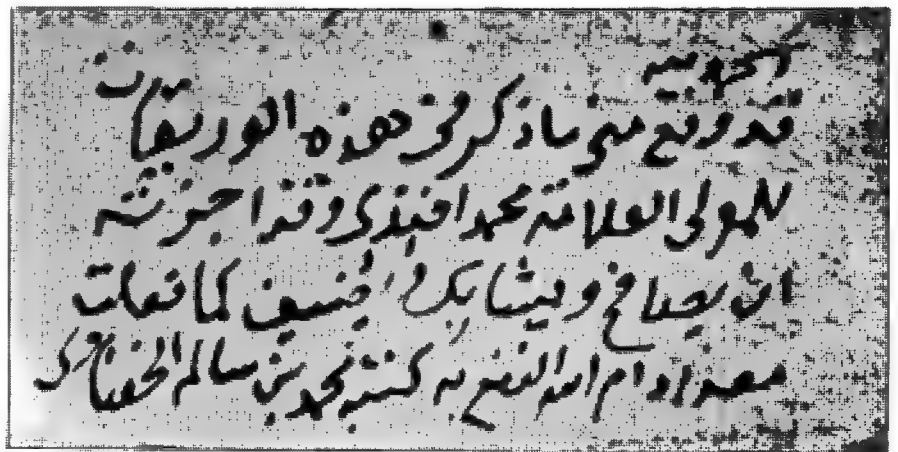 الحمد لله
قد وقع مني ما ذكر في هذه الوريقات
للمولى العلامة محمد افندي وقد اجزته
ان يصافح ويشابك ويضيف كما فعلت
معه ادام الله النفع به كتبه محمد بن سالم الحفناوي